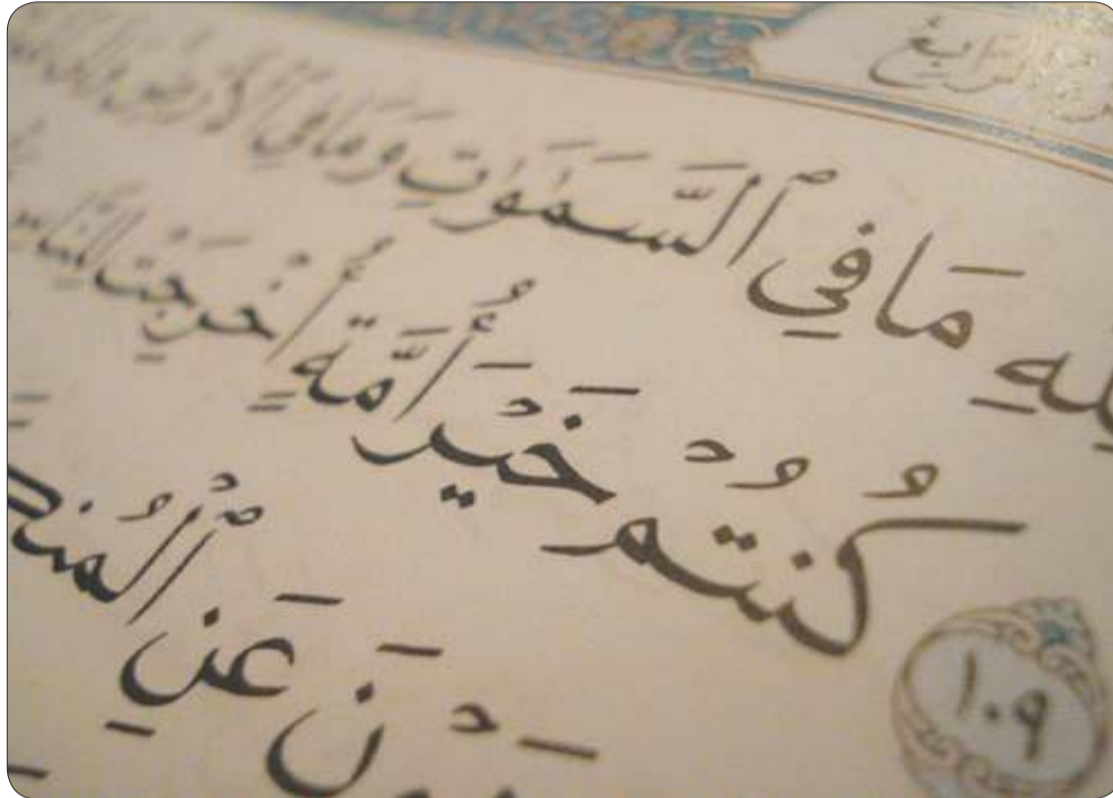 الرابع
لِلَّهِ مَا فِي ٱلسَّمَٰوَٰتِ وَمَا فِي ٱلْأَرْضِ
١٠٩ كُنتُمْ خَيْرَ أُمَّةٍ أُخْرِجَتْ لِلنَّاسِ
وْنَ عَنِ ٱلْمُنك